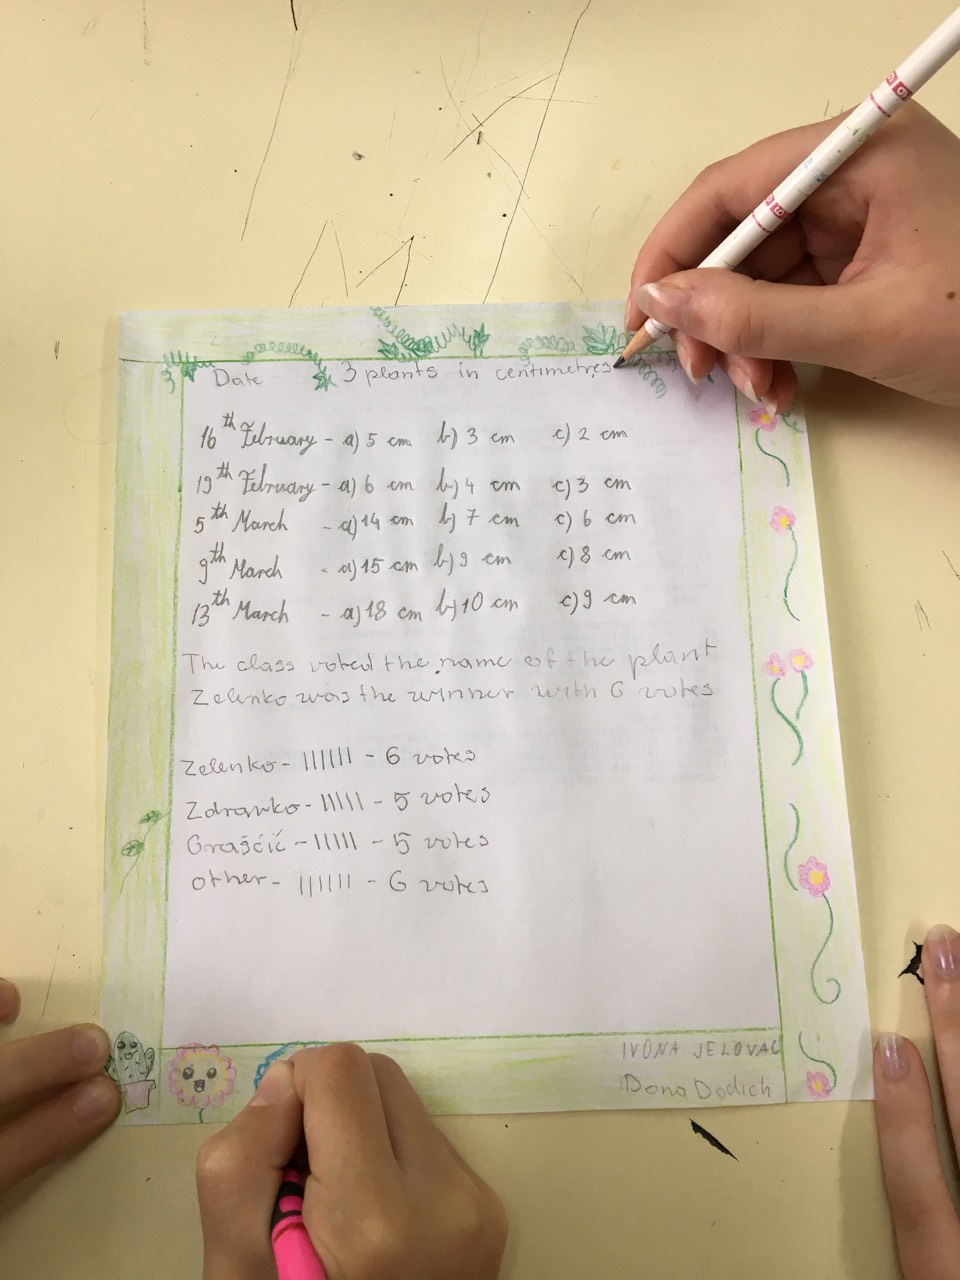 Date 3 plants in centimetres
16th February - a) 5 cm b) 3 cm c) 2 cm
19th February - a) 6 cm b) 4 cm c) 3 cm
5th March - a) 14 cm b) 7 cm c) 6 cm
9th March - a) 15 cm b) 9 cm c) 8 cm
13th March - a) 18 cm b) 10 cm c) 9 cm
The class voted the name of the plant
Zelenko was the winner with 6 votes
Zelenko - |||||| - 6 votes
Zdravko - ||||| - 5 votes
Graščić - ||||| - 5 votes
other - |||||| - 6 votes
IVONA JELOVAC
Dona Dodich